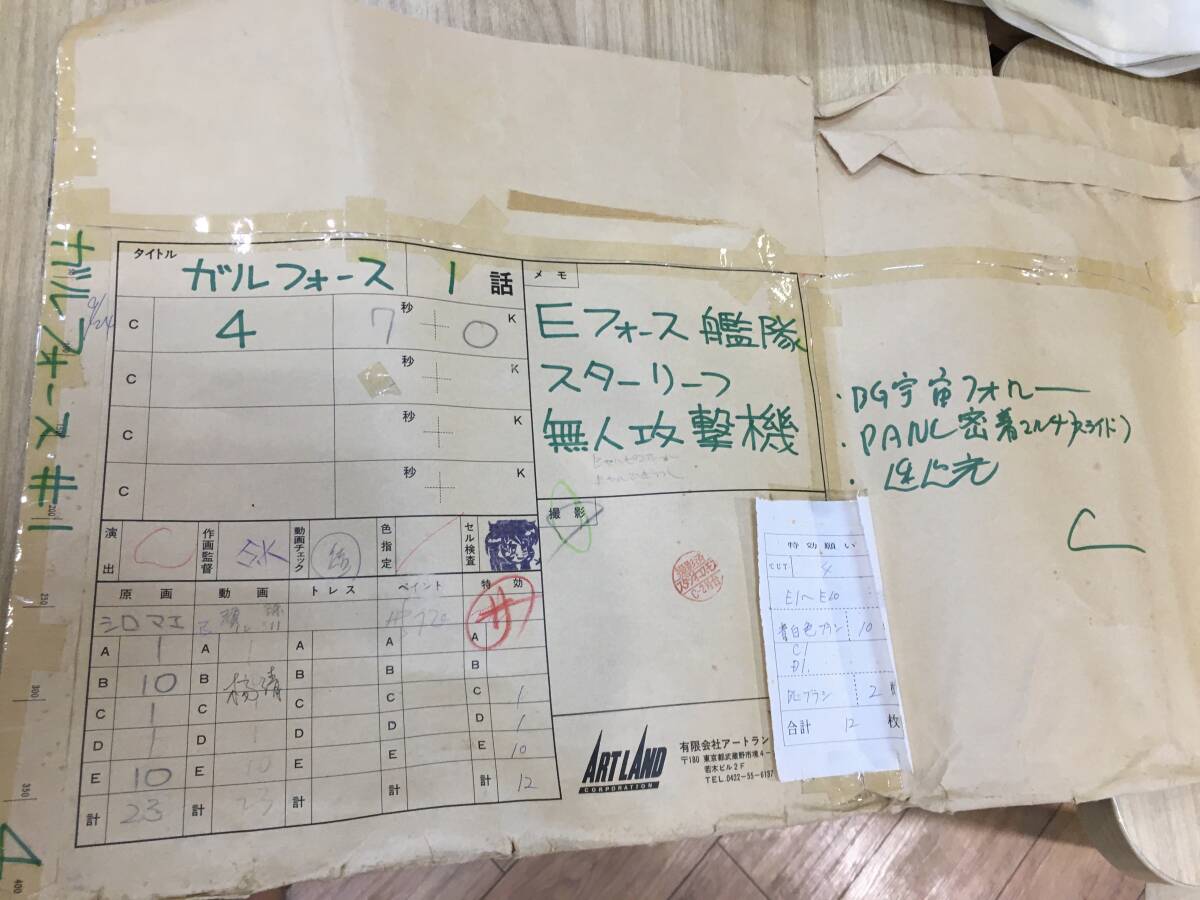 ガルフォース#1
4
9/24
タイトル
ガルフォース 1 話
C 4 7 秒 + 0 K
C 秒 K
C 秒 K
C 秒 K
メモ
Eフォース艦隊
スターリーフ
無人攻撃機
・BG宇宙フォロー
・PANC密着マルチ(スライド)
・透過光
演出
作画監督
動画チェック
色指定
セル検査
撮影
原画 動画 トレス ペイント 特効
シロマエ
A 1 A 1 A A A
B 10 B B B B
C 1 C C C C 1
D 1 D 1 D D D 1
E 10 E 10 E E E 10
計 23 計 23 計 計 計 12
ARTLAND
CORPORATION
有限会社アートラン
〒180 東京都武蔵野市境4-
若木ビル2F
TEL.0422-55-6137
特効願い
4
E1〜E10
青白色ブラシ 10
C1
D1.
ブラシ 2
合計 12 枚